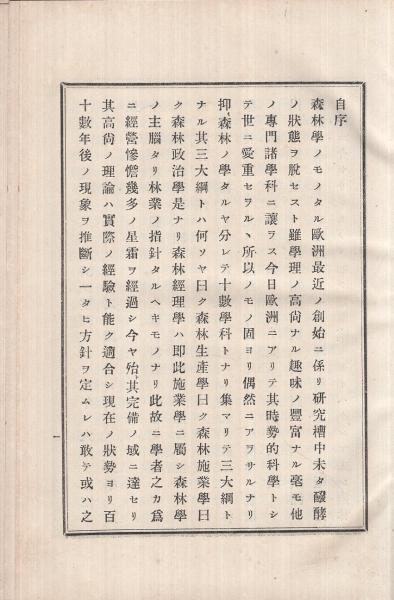 自序
森林學ノモノタル歐洲最近ノ創始ニ係リ研究槽中未タ醱酵
ノ狀態ヲ脫セスト雖學理ノ高尙ナル趣味ノ豐富ナル毫モ他
ノ專門諸學科ニ讓ラス今日歐洲ニアリテ其時勢的科學トシ
テ世ニ愛重セラルヽ所以ノモノ固ヨリ偶然ニアラサルナリ
抑森林ノ學タルヤ分レテ十數學科トナリ集マリテ三大綱ト
ナル其三大綱トハ何ソヤ曰ク森林生產學曰ク森林施業學曰
ク森林政治學是ナリ森林經理學ハ卽此施業學ニ屬シ森林學
ノ主腦タリ林業ノ指針タルヘキモノナリ此故ニ學者之カ爲
ニ經營慘憺幾多ノ星霜ヲ經過シ今ヤ殆其完備ノ域ニ達セリ
其高尙ノ理論ハ實際ノ經驗ト能ク適合シ現在ノ狀勢ヨリ百
十數年後ノ現象ヲ推斷シ一タヒ方針ヲ定ムレハ敢テ或ハ之
一